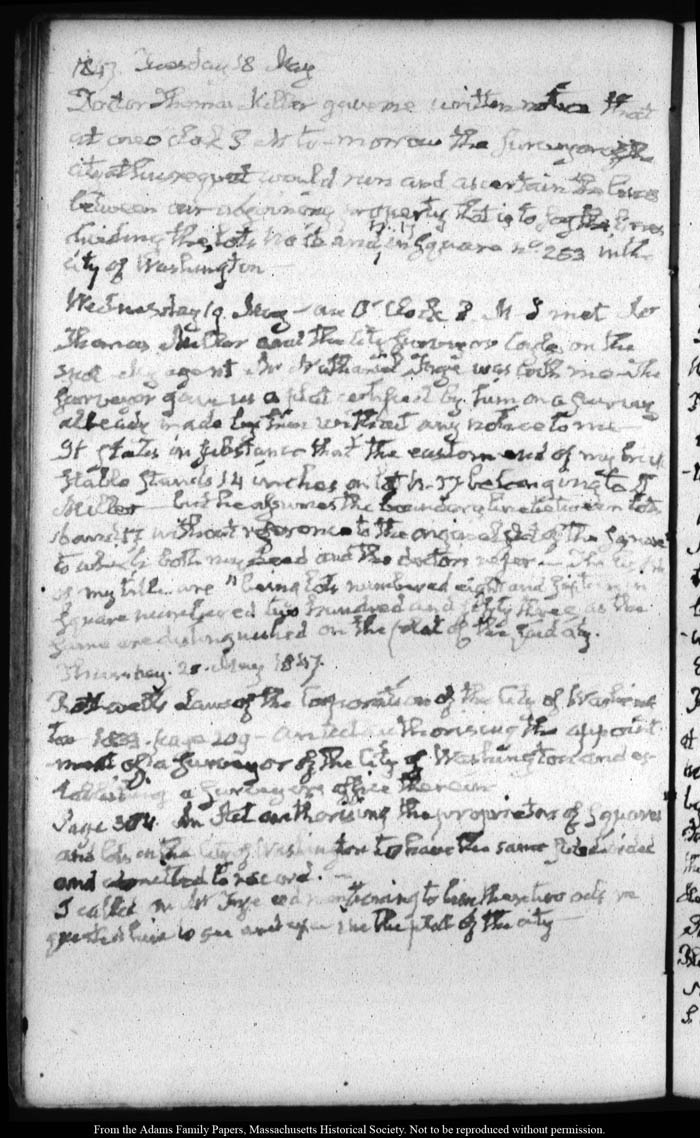 1847. Tuesday 18 May
Doctor Thomas Miller gave me written notice that
at one o clock P M to-morrow the Surveyor of the
city at his request would run and ascertain the lines
between our adjoining property that is to say the lines
dividing the lots No 16 and 17 in Square no 253 in the
city of Washington
Wednesday 19. May - one O'Clock P. M I met Dr
Thomas Miller and the City Surveyor on the
spot - My agent Mr Nathaniel Frye was with me - The
Surveyor gave us a plat certified by him on a survey
already made by him without any notice to me -
It states in substance that the eastern end of my brick
stable stands 14 inches on lot N. 17 belonging to D
Miller - but he assumes the boundary line between lots
and 17 without reference to the original plat of the Square
to which both my deed and the doctors refer - The
of my title are "being lots numbered eight and sixteen in
Square numbered two hundred and fifty three as the
same are distinguished on the plat of the said city.
Thursday. 20. May 1847.
Rothwells Laws of the Corporation of the City of Washing
ton 1833. page 209 - an act authorising the appoint
ment of a Surveyor of the City of Washington and es-
tablishing a Surveyors office therein
Page 304. An Act authorising the proprietors of Squares
and lots in the City of Washington to have the same subdivided
and admitted to record. -
I called on Mr Frye and mentioning to him these two acts re
quested him to see and examine the plat of the city
From the Adams Family Papers, Massachusetts Historical Society. Not to be reproduced without permission.